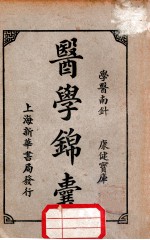 學醫南針
康健寶庫
醫學錦囊
上海新華書局發行